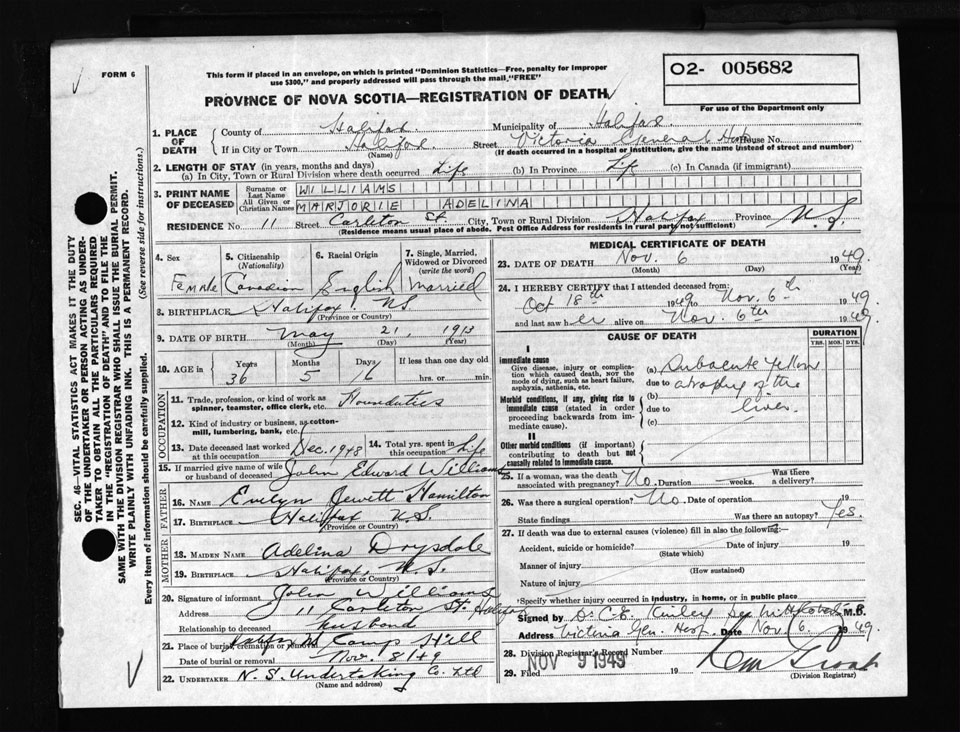 FORM 6
This form if placed in an envelope, on which is printed "Dominion Statistics—Free, penalty for improper
use $300," and properly addressed will pass through the mail, "FREE"
O2- 005682
For use of the Department only
PROVINCE OF NOVA SCOTIA—REGISTRATION OF DEATH
SEC. 46 - VITAL STATISTICS ACT MAKES IT THE DUTY
OF THE UNDERTAKER OR PERSON ACTING AS UNDER-
TAKER TO OBTAIN ALL THE PARTICULARS REQUIRED
IN THE "REGISTRATION OF DEATH" AND TO FILE THE
SAME WITH THE DIVISION REGISTRAR WHO SHALL ISSUE THE BURIAL PERMIT.
WRITE PLAINLY WITH UNFADING INK. THIS IS A PERMANENT RECORD.
Every item of information should be carefully supplied. (See reverse side for instructions.)
1. PLACE OF DEATH County of Halifax Municipality of Halifax
If in City or Town Halifax (Name) Street Victoria General Hosp. House No.
(If death occurred in a hospital or institution, give the name instead of street and number)
2. LENGTH OF STAY (in years, months and days)
(a) In City, Town or Rural Division where death occurred Life (b) In Province Life (c) In Canada (if immigrant)
3. PRINT NAME OF DECEASED Surname or Last Name WILLIAMS
All Given or Christian Names MARJORIE ADELINA
RESIDENCE No. 11 Street Carleton St. City, Town or Rural Division Halifax Province N.S.
(Residence means usual place of abode. Post Office Address for residents in rural parts not sufficient)
4. Sex Female
5. Citizenship (Nationality) Canadian
6. Racial Origin English
7. Single, Married, Widowed or Divorced (write the word) Married
8. BIRTHPLACE Halifax N.S.
(Province or Country)
9. DATE OF BIRTH May 21, 1913
(Month) (Day) (Year)
10. AGE in Years 36 Months 5 Days 16 If less than one day old hrs. or min.
OCCUPATION
11. Trade, profession, or kind of work as spinner, teamster, office clerk, etc. Housduties
12. Kind of industry or business, as cotton-mill, lumbering, bank, etc.
13. Date deceased last worked at this occupation Dec. 1948 14. Total yrs. spent in this occupation Life
15. If married give name of wife or husband of deceased John Edward Williams
FATHER
16. NAME Evelyn Jewett Hamilton
17. BIRTHPLACE Halifax N.S.
(Province or Country)
MOTHER
18. MAIDEN NAME Adelina Drysdale
19. BIRTHPLACE Halifax, N.S.
(Province or Country)
20. Signature of informant John Williams
Address 11 Carleton St. Halifax
Relationship to deceased husband
21. Place of burial, cremation or removal Camp Hill
Date of burial or removal Nov. 8/49
22. UNDERTAKER N.S. Undertaking Co. Ltd
(Name and address)
MEDICAL CERTIFICATE OF DEATH
23. DATE OF DEATH Nov. 6 1949.
(Month) (Day) (Year)
24. I HEREBY CERTIFY that I attended deceased from:
Oct 18th 1949 to Nov. 6th 1949.
and last saw her alive on Nov. 6th 1949
CAUSE OF DEATH
DURATION
YRS. MOS. DYS.
I
Immediate cause
Give disease, injury or complication which caused death, not the mode of dying, such as heart failure, asphyxia, asthenia, etc.
(a) Subacute Yellow
due to atrophy of the
Morbid conditions, if any, giving rise to immediate cause (stated in order proceeding backwards from immediate cause).
(b)
due to liver.
(c)
II
Other morbid conditions (if important) contributing to death but not causally related to immediate cause.
25. If a woman, was the death associated with pregnancy? No. Duration weeks. Was there a delivery?
26. Was there a surgical operation? No. Date of operation 19
State findings Was there an autopsy? Yes.
27. If death was due to external causes (violence) fill in also the following:—
Accident, suicide or homicide? Date of injury 19
(State which)
Manner of injury
(How sustained)
Nature of injury
*Specify whether injury occurred in industry, in home, or in public place
Signed by Dr. C. E. Kinley M.D.
Address Victoria Gen. Hosp. Date Nov. 6. 1949.
28. Division Registrar's Record Number
NOV 9 1949
29. Filed 19
(Division Registrar)